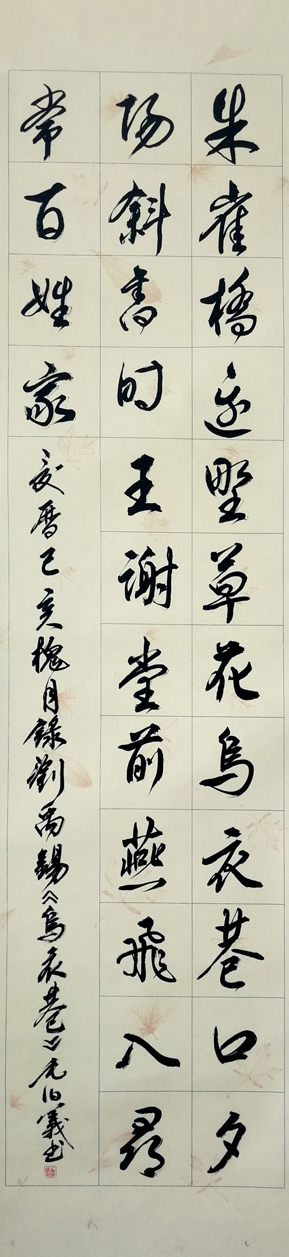 朱雀橋邊野草花烏衣巷口夕
陽斜舊时王謝堂前燕飛入尋
常百姓家
夏曆己亥槐月錄劉禹錫《烏衣巷》伯義书